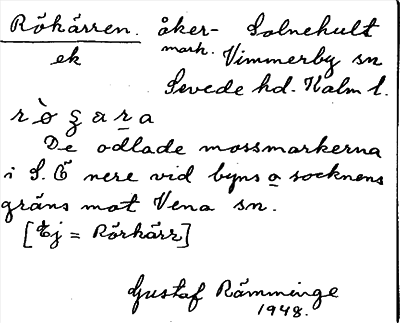 Rökärren. åker- Solnehult
ek mark. Vimmerby sn
Sevede hd. Kalm l.
rö̀ʒara
De odlade mossmarkerna
i S. Ö nere vid byns o socknens
gräns mot Vena sn.
[Ej = Rörkärr]
Gustaf Rämminge
1948.